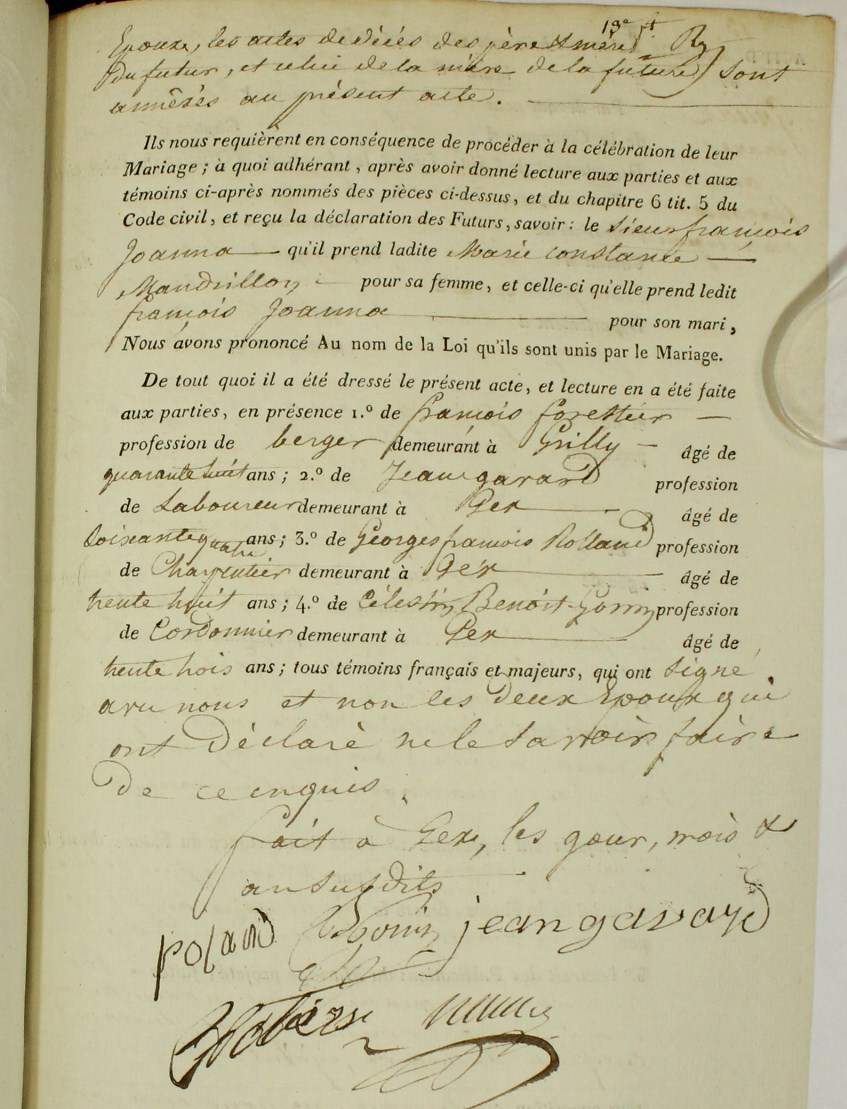 Epoux, les actes de décès des père et mère
du futur, et celui de la mère de la future) sont
annéxés au présent acte.
Ils nous requièrent en conséquence de procéder à la célébration de leur
Mariage ; à quoi adhérant, après avoir donné lecture aux parties et aux
témoins ci-après nommés des pièces ci-dessus, et du chapitre 6 tit. 5 du
Code civil, et reçu la déclaration des Futurs, savoir : le sieur françois
Joanna — qu'il prend ladite Marie constance —
Mandrillon — pour sa femme, et celle-ci qu'elle prend ledit
françois Joanna — pour son mari,
Nous avons prononcé Au nom de la Loi qu'ils sont unis par le Mariage.
De tout quoi il a été dressé le présent acte, et lecture en a été faite
aux parties, en présence 1.º de françois forestier —
profession de berger demeurant à Grilly — âgé de
quarante huit ans ; 2.º de Jean gavard profession
de Laboureur demeurant à Gex — âgé de
soixante quatre ans ; 3.º de Georges françois Rolland profession
de Charpentier demeurant à Gex — âgé de
trente huit ans ; 4.º de Célestin Benoit Gonin profession
de Cordonnier demeurant à Gex — âgé de
trente trois ans ; tous témoins français et majeurs, qui ont signé
avec nous et non les deux Epoux qui
ont déclaré ne le savoir faire
de ce enquis.
fait à Gex, les jour, mois &
an susdits
roland Gonin jean gavard